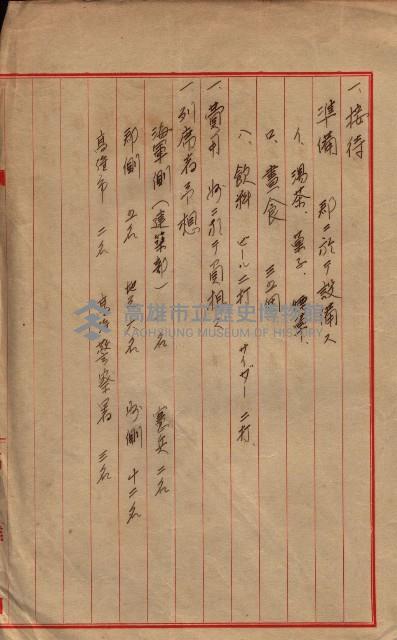 一、接待
準備 郡ニ於テ設備ス
イ、湯茶、菓子、煙草
ロ、晝食 三五個
ハ、飲料 ビール二打 サイダー二打
一、費用 州ニ於テ負担ス
一、列席者予想
海軍側（建築部） 名 憲兵二名
郡側 五名 名 州側 十二名
高雄市 二名 高雄警察署 三名
高雄市立歷史博物館
KAOHSIUNG MUSEUM OF HISTORY